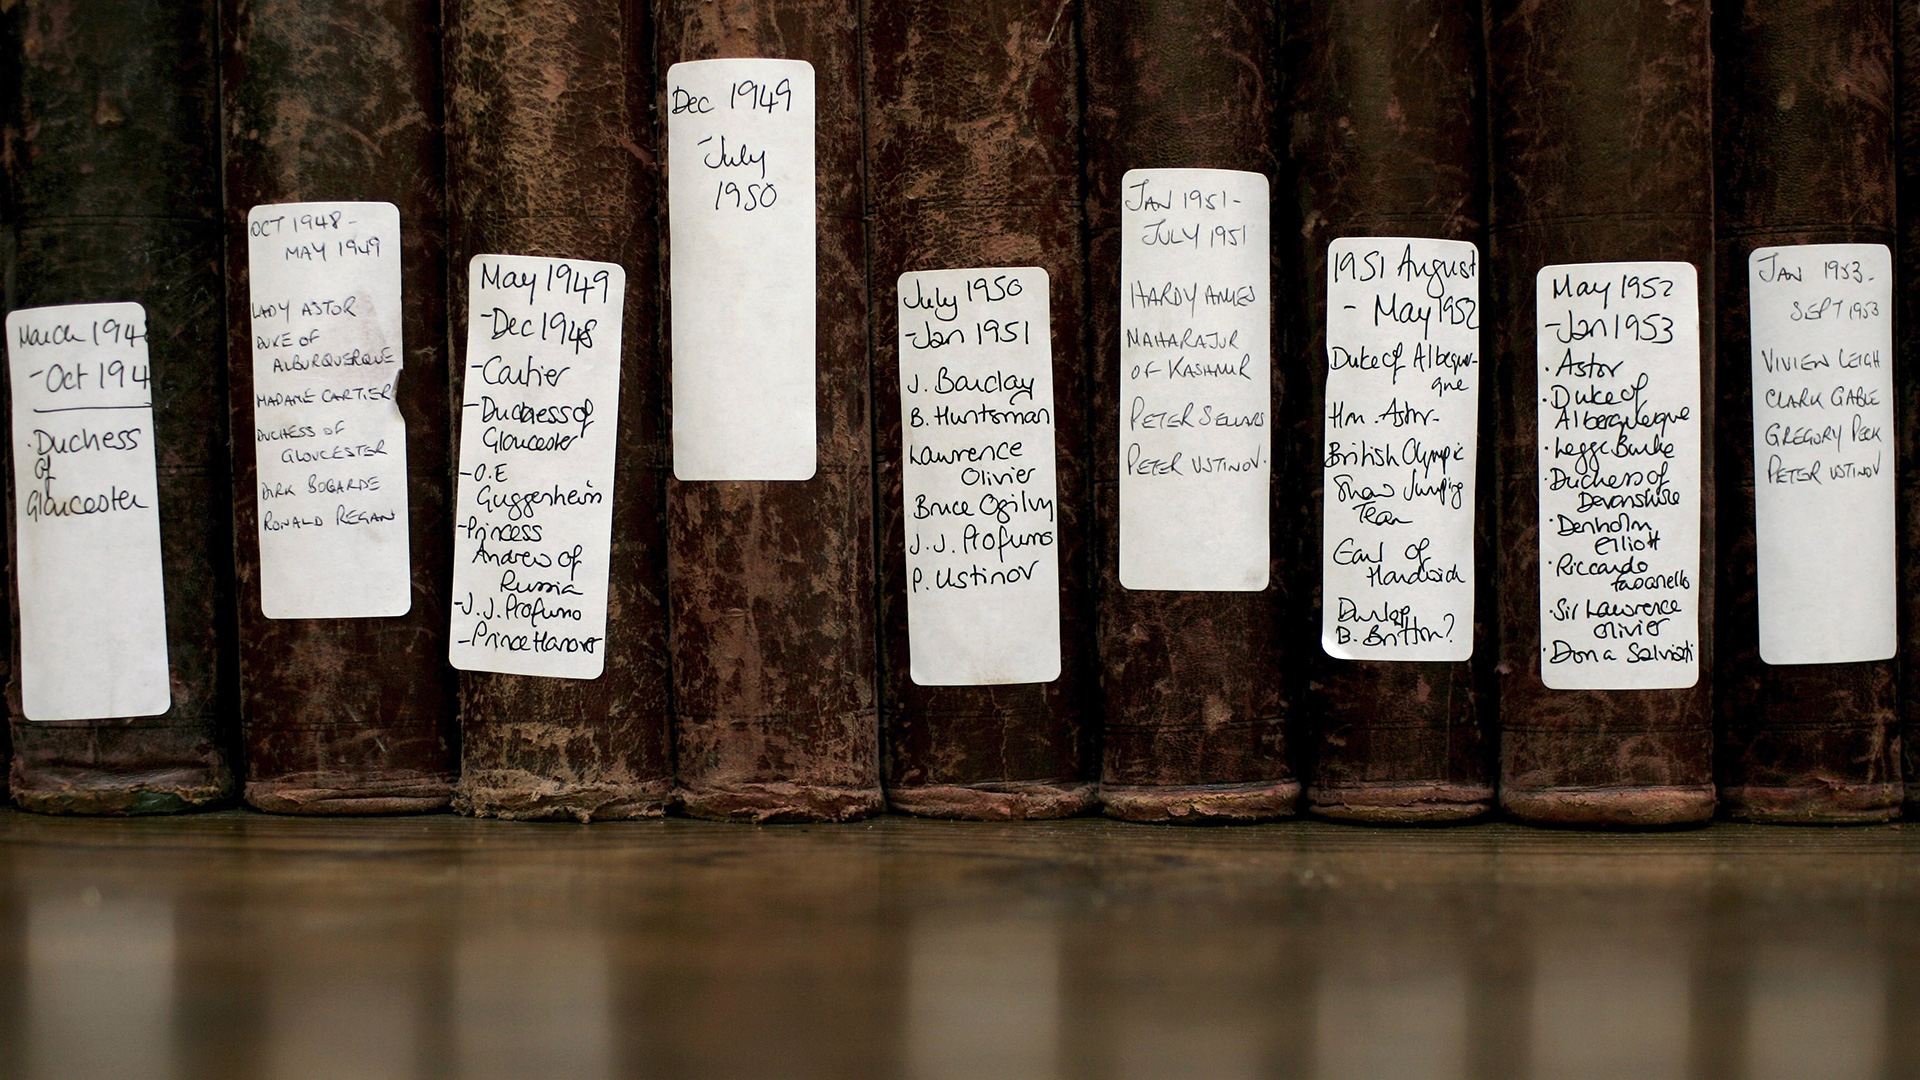 March 194
-Oct 194
·Duchess
of
Gloucester
OCT 1948-
MAY 1949
LADY ASTOR
DUKE OF
ALBURQUERQUE
MADAME CARTIER
DUCHESS OF
GLOUCESTER
DIRK BOGARDE
RONALD REGAN
May 1949
-Dec 1948
-Cartier
-Duchess of
Gloucester
-O.E
Guggenheim
-Princess
Andrew of
Russia
-J.J. Profumo
-Prince Hanover
Dec 1949
-July
1950
July 1950
-Jan 1951
J. Barclay
B. Huntsman
Lawrence
Olivier
Bruce Ogilvy
J.J. Profumo
P. Ustinov
JAN 1951-
JULY 1951
HARDY AMIES
MAHARAJUR
OF KASHMIR
PETER SELLERS
PETER USTINOV.
1951 August
- May 1952
Duke of Albequer-
que
Hm. Astor.
British Olympic
Show Jumping
Team
Earl of
Hardwick
Dunlop
B. Britton?
May 1952
-Jan 1953
·Astor
·Duke of
Alberquerque
·Legge Burke
·Duchess of
Devonshire
·Denholm
Elliott
·Riccardo
·Sir Lawrence
Olivier
·Dona Salviati
JAN 1953-
SEPT 1953
VIVIEN LEIGH
CLARK GABLE
GREGORY PECK
PETER USTINOV